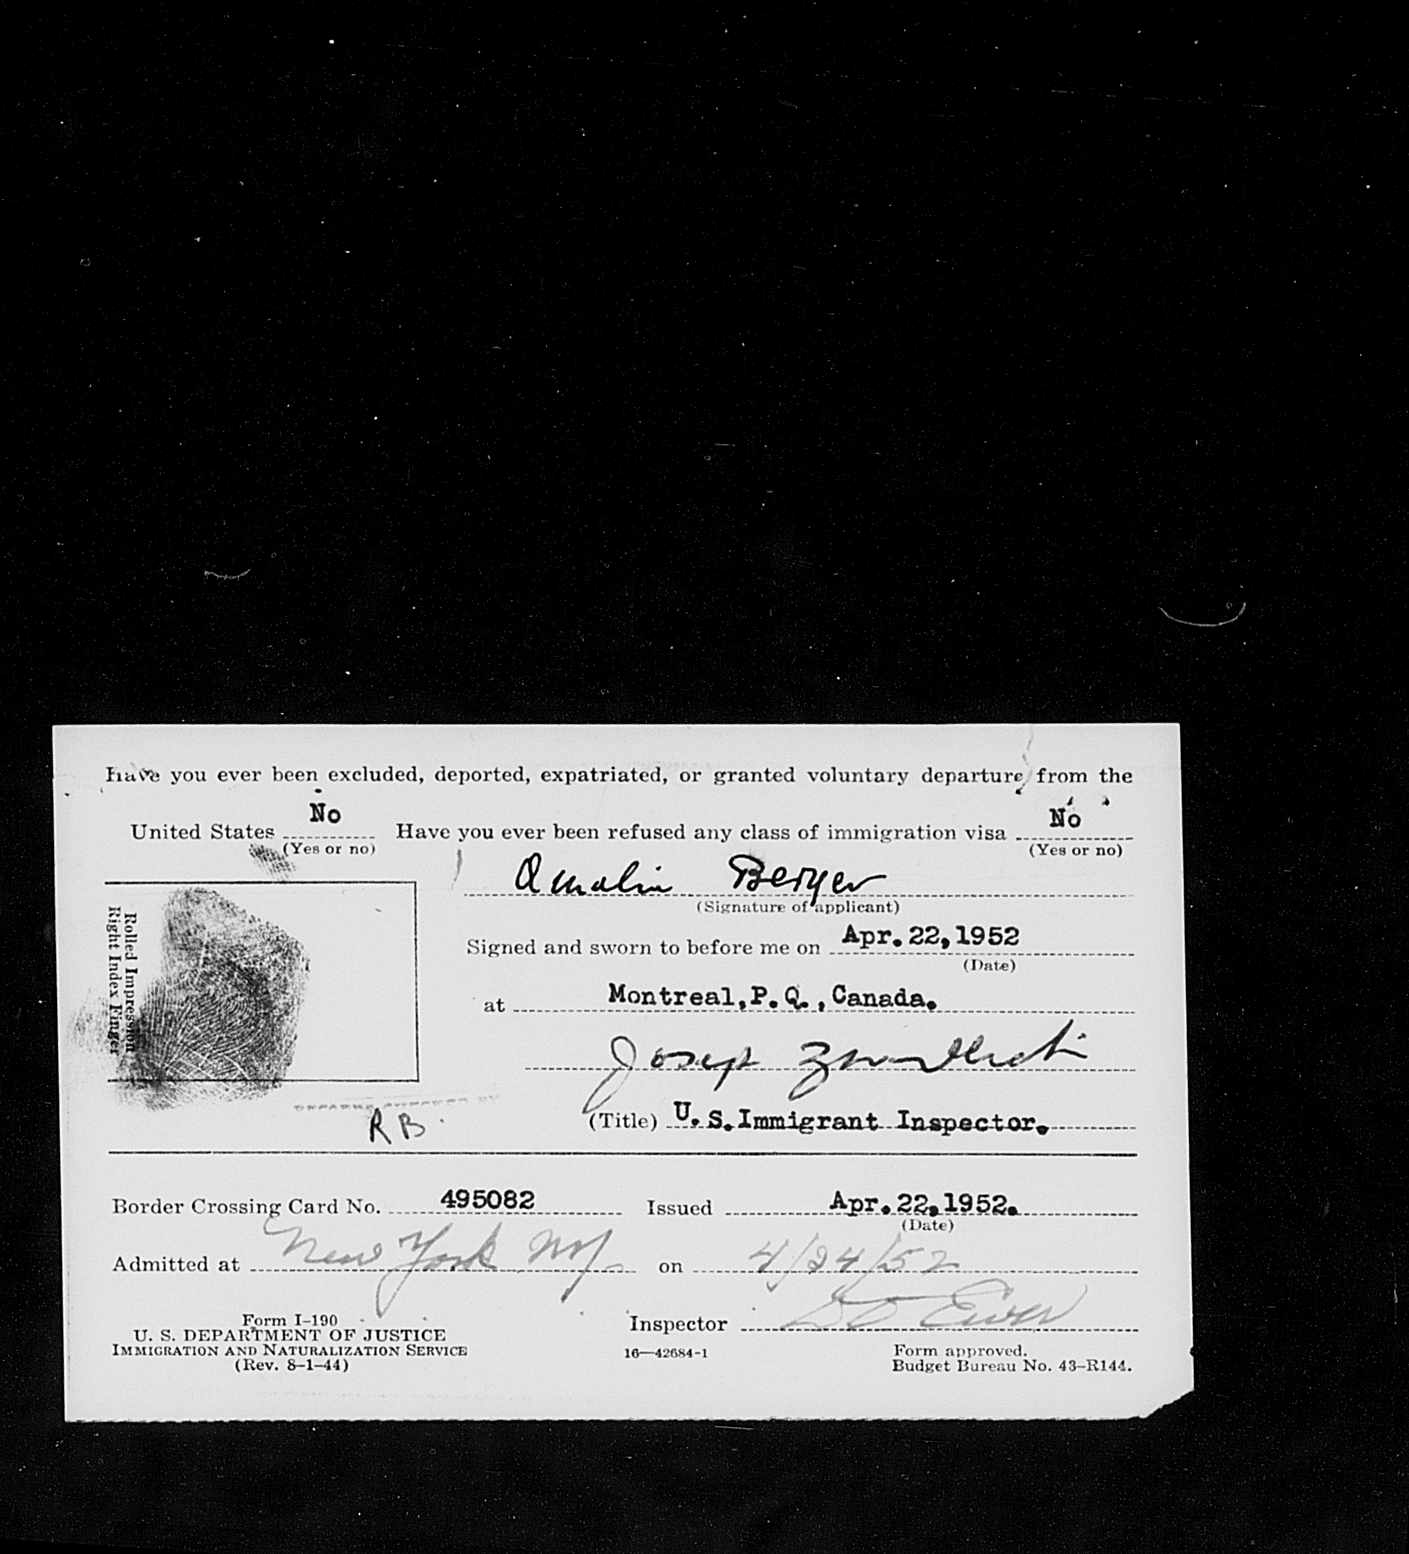 Have you ever been excluded, deported, expatriated, or granted voluntary departure from the
United States No Have you ever been refused any class of immigration visa No
(Yes or no) (Yes or no)
Amalia Berger
(Signature of applicant)
Signed and sworn to before me on Apr. 22, 1952
(Date)
at Montreal, P. Q., Canada.
Joseph
(Title) U. S. Immigrant Inspector.
Rolled Impression
Right Index Finger
RB.
Border Crossing Card No. 495082 Issued Apr. 22, 1952.
(Date)
Admitted at New York NY on 4/24/52
Inspector
Form I-190
U. S. DEPARTMENT OF JUSTICE
IMMIGRATION AND NATURALIZATION SERVICE
(Rev. 8-1-44)
16—42684-1
Form approved.
Budget Bureau No. 43-R144.